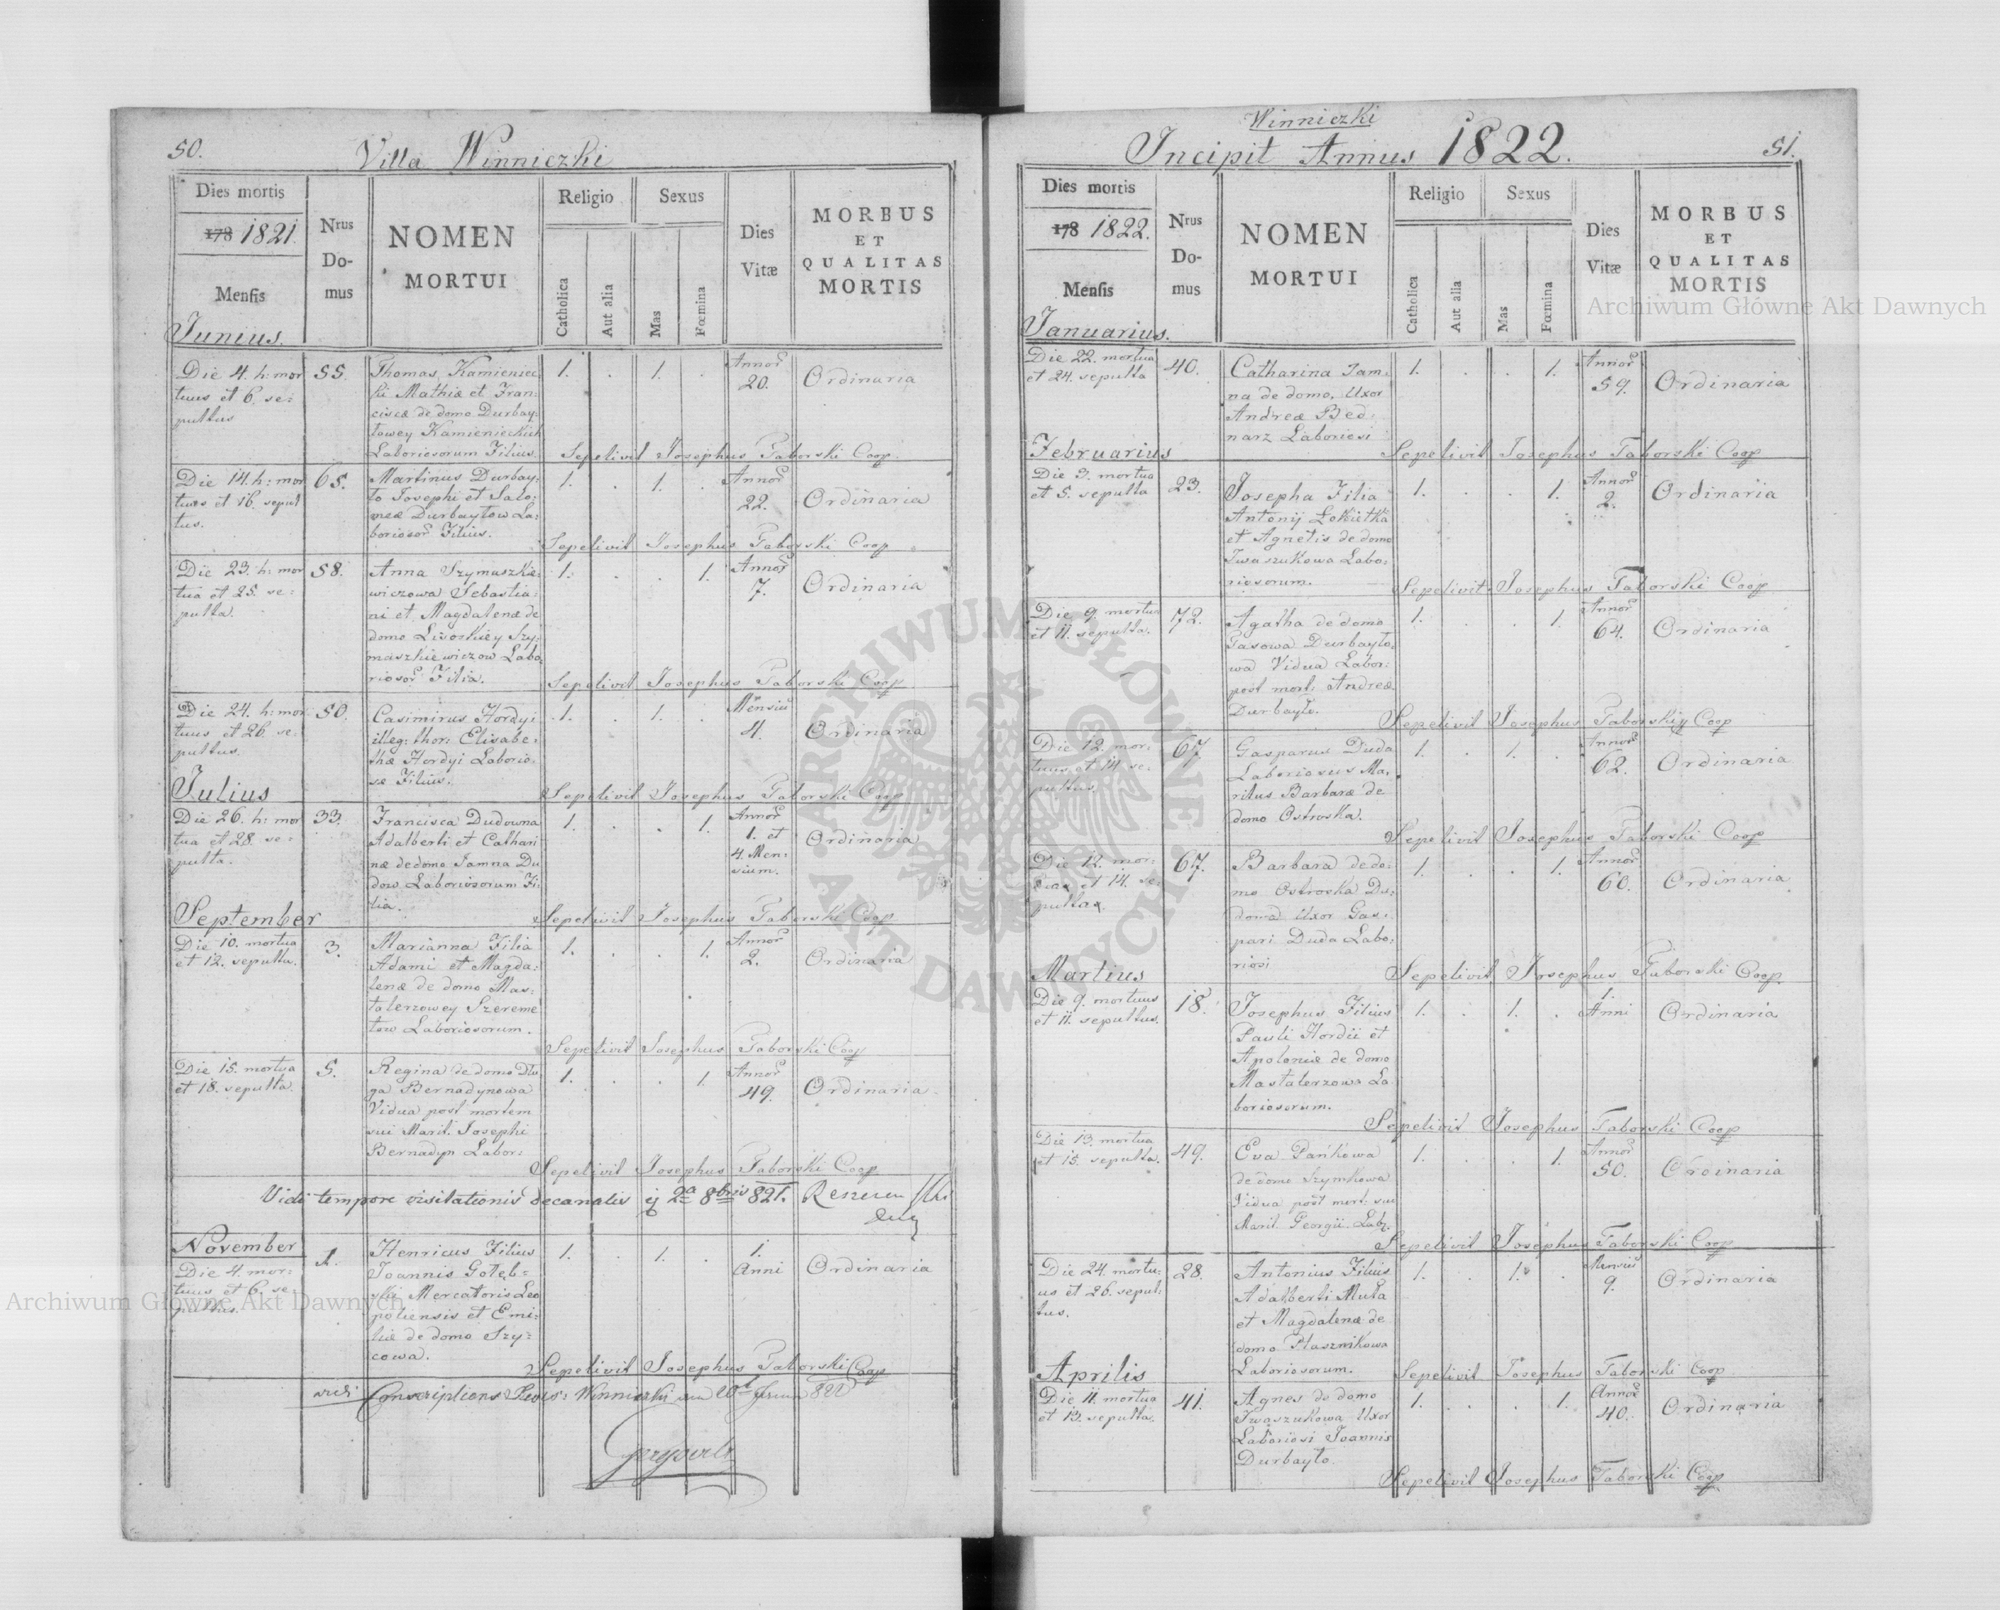 50.
Villa Winniczki
Dies mortis
178 1821.
Mensis
Nrus
Do-
mus
NOMEN
MORTUI
Religio
Catholica
Aut alia
Sexus
Mas
Fœmina
Dies
Vitæ
MORBUS
ET
QUALITAS
MORTIS
Junius.
Die 4. h: mor
tuus et 6. se:
pultus
55.
Thomas Kamieniec
ki Mathiæ et Fran:
ciscæ de domo Durbay:
towey Kamienieckich
Laboriosorum Filius.
1. . 1. .
Annor
20.
Ordinaria
Sepelivit Josephus Taborski Coop.
Die 14. h: mor
tuus et 16. sepul
tus.
65.
Martinus Durbay:
to Josephi et Salo:
meæ Durbaytow La:
boriosor Filius.
1. . 1. .
Annor
22.
Ordinaria
Sepelivit Josephus Taborski Coop
Die 23. h: mor
tua et 25. se:
pulta.
58.
Anna Szymaszkie:
wiczowa Sebastia:
ni et Magdalenæ de
domo Lwoskiey Szy:
maszkiewiczow Labo
riosor Filia.
1. . . 1.
Annor
7.
Ordinaria
Sepelivit Josephus Taborski Coop
Die 24. h: mor
tuus et 26. se:
pultus.
50.
Casimirus Hordyi
illeg: thor: Elisabe:
thæ Hordyi Laborio:
sæ Filius.
1. . 1. .
Mensiu
4.
Ordinaria
Sepelivit Josephus Taborski Coop
Julius
Die 26. h: mor
tua et 28. se:
pulta.
33.
Francisca Dudowna
Adalberti et Cathari
næ de domo Jamna Du
dow Laboriosorum Fi
lia.
1. . . 1.
Annor
1. et
4. Men:
sium.
Ordinaria
Sepelivit Josephus Taborski Coop
September
Die 10. mortua
et 12. sepulta.
3.
Marianna Filia
Adami et Magda:
lenæ de domo Mas:
talerzowey Szereme
tow Laboriosorum.
1. . . 1.
Annor
2.
Ordinaria
Sepelivit Josephus Taborski Coop
Die 15. mortua
et 18. sepulta
5.
Regina de domo Dłu
ga Bernadynowa
Vidua post mortem
sui Marit. Josephi
Bernadyn Labor:
1. . . 1.
Annor
49.
Ordinaria.
Sepelivit Josephus Taborski Coop
Vidi tempore visitationis decanalis 2a 8bris 821.
November
Die 4. mor:
tuus et 6. se
pultus.
1.
Henricus Filius
Joannis Gołęb:
ski Mercatoris Leo
poliensis et Emi:
liæ de domo Szy:
cowa.
1. . 1. .
1.
Anni
Ordinaria
Sepelivit Josephus Taborski Coop
vidi Conscriptions Winniczki 822
Winniczki
Incipit Annus 1822.
51.
Dies mortis
178 1822.
Mensis
Nrus
Do-
mus
NOMEN
MORTUI
Religio
Catholica
Aut alia
Sexus
Mas
Fœmina
Dies
Vitæ
MORBUS
ET
QUALITAS
MORTIS
Januarius.
Die 22. mortua
et 24. sepulta
40.
Catharina Jam:
na de domo, Uxor
Andreæ Bed:
narz Laboriosi
1. . . 1.
Annor
59.
Ordinaria
Sepelivit Josephus Taborski Coop
Februarius
Die 3. mortua
et 5. sepulta
23.
Josepha Filia
Antonij Łokietka
et Agnetis de domo
Iwaszukowa Labo:
riosorum.
1. . . 1.
Annor
2.
Ordinaria
Sepelivit Josephus Taborski Coop
Die 9. mortua
et 11. sepulta.
72.
Agatha de domo
Pasowa Durbayto:
wa Vidua Labor:
post mort: Andreæ
Durbayto.
1. . . 1.
Annor
64.
Ordinaria
Sepelivit Josephus Taborskiy Coop
Die 12. mor:
tuus et 14. se:
pultus.
67.
Gasparus Duda
Laboriosus Ma:
ritus Barbaræ de
domo Ostroska.
1. . 1. .
Annor
62.
Ordinaria
Sepelivit Josephus Taborski Coop
Die 12. mor:
tua et 14. se
pulta.
67.
Barbara de do:
mo Ostroska Du:
dowa Uxor Gas:
pari Duda Labo:
riosi
1. . . 1.
Annor
60.
Ordinaria
Sepelivit Josephus Taborski Coop
Martius
Die 9. mortuus
et 11. sepultus.
18.
Josephus Filius
Pauli Hordii et
Apoloniæ de domo
Mastalerzowa La
boriosorum.
1. . 1. .
1.
Anni
Ordinaria
Sepelivit Josephus Taborski Coop
Die 13. mortua
et 15. sepulta.
49.
Eva Pańkowa
de domo Szymkowa
Vidua post mort: sui
Marit Georgii Lab:
1. . . 1.
Annor
50.
Ordinaria
Sepelivit Josephus Taborski Coop
Die 24. mortu:
us et 26. sepul:
tus.
28.
Antonius Filius
Adalberti Muła
et Magdalenæ de
domo Ptasznikowa
Laboriosorum.
1. . 1. .
Mensiu
9.
Ordinaria
Sepelivit Josephus Taborski Coop
Aprilis
Die 11. mortua
et 13. sepulta.
41.
Agnes de domo
Iwaszukowa Uxor
Laboriosi Joannis
Durbayto.
1. . . 1.
Annor
40.
Ordinaria
Sepelivit Josephus Taborski Coop
Archiwum Główne Akt Dawnych
Archiwum Główne Akt Dawnych
ARCHIWUM GŁÓWNE • AKT DAWNYCH •